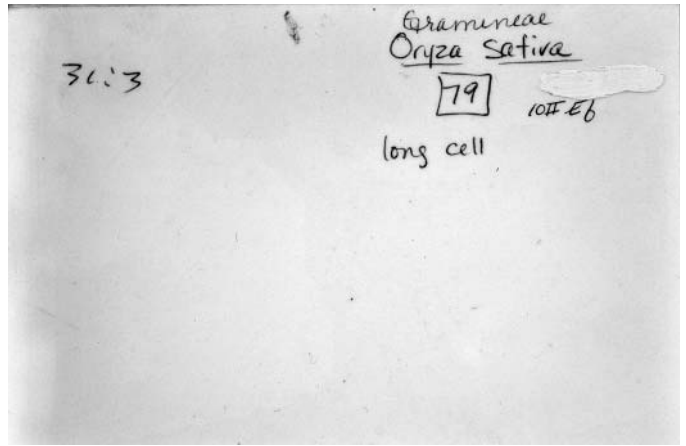 Gramineae
Oryza Sativa
3c:3
79
10II Eb
long cell